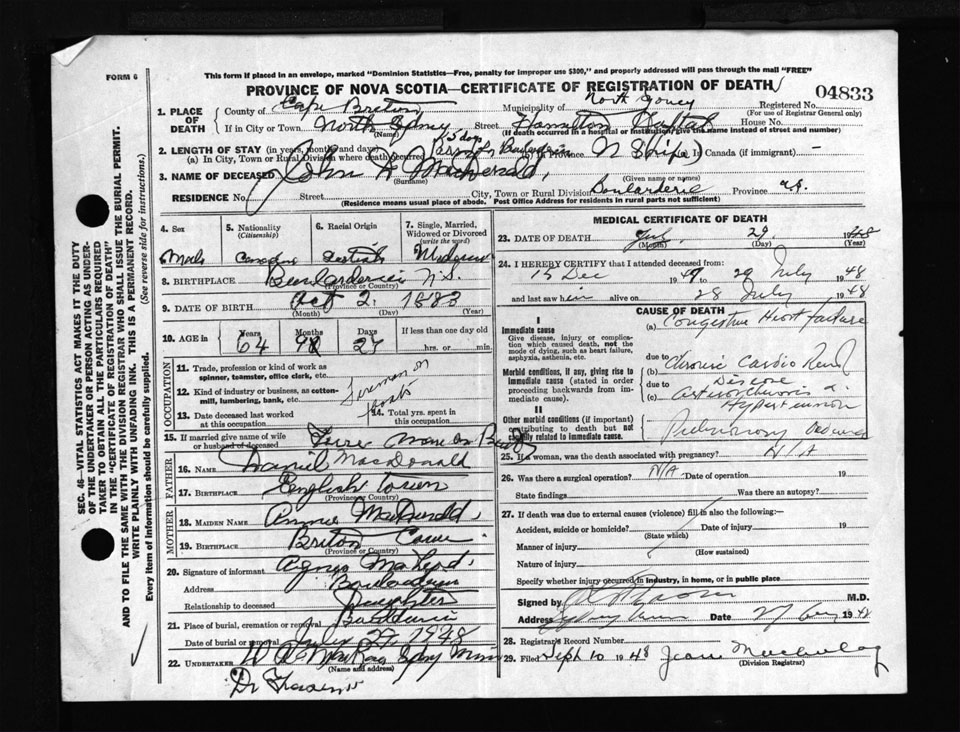 FORM 6
This form if placed in an envelope, marked "Dominion Statistics—Free, penalty for improper use $300," and properly addressed will pass through the mail "FREE"
PROVINCE OF NOVA SCOTIA—CERTIFICATE OF REGISTRATION OF DEATH
04833
1. PLACE OF DEATH County of Cape Breton Municipality of North Sydney Registered No.
(For use of Registrar General only)
If in City or Town North Sydney Street Hamilton House No.
(Name) (If death occurred in a hospital or institution, give the name instead of street and number)
2. LENGTH OF STAY (in years, months and days) 5 days
(a) In City, Town or Rural Division where death occurred (b) in Province N S (life) In Canada (if immigrant) —
3. NAME OF DECEASED John MacDonald
(Surname) (Given name or names)
RESIDENCE No. Street City, Town or Rural Division Boularderie Province N.S.
(Residence means usual place of abode. Post Office Address for residents in rural parts not sufficient)
SEC. 46—VITAL STATISTICS ACT MAKES IT THE DUTY OF THE UNDERTAKER OR PERSON ACTING AS UNDERTAKER TO OBTAIN ALL THE PARTICULARS REQUIRED IN THE "CERTIFICATE OF REGISTRATION OF DEATH" AND TO FILE THE SAME WITH THE DIVISION REGISTRAR WHO SHALL ISSUE THE BURIAL PERMIT.
WRITE PLAINLY WITH UNFADING INK. THIS IS A PERMANENT RECORD.
Every item of information should be carefully supplied. (See reverse side for instructions.)
4. Sex
5. Nationality
(Citizenship)
6. Racial Origin
7. Single, Married, Widowed or Divorced
(write the word)
Male Canadian Scottish
8. BIRTHPLACE N.S.
(Province or Country)
9. DATE OF BIRTH Oct 2 1883
(Month) (Day) (Year)
10. AGE in Years Months Days If less than one day old
64 9 27 hrs. or min.
OCCUPATION
11. Trade, profession or kind of work as spinner, teamster, office clerk, etc.
12. Kind of industry or business, as cotton-mill, lumbering, bank, etc.
Fireman on boats
13. Date deceased last worked at this occupation
14. Total yrs. spent in this occupation
15. If married give name of wife or husband of deceased
FATHER
16. NAME Daniel MacDonald
17. BIRTHPLACE English Town
(Province or Country)
MOTHER
18. MAIDEN NAME Annie MacDonald
19. BIRTHPLACE Briton Cove
(Province or Country)
20. Signature of informant Agnes MacLeod
Address Boularderie
Relationship to deceased Daughter
21. Place of burial, cremation or removal Boularderie
Date of burial or removal 1948
22. UNDERTAKER Sydney Mines
(Name and address)
Dr
MEDICAL CERTIFICATE OF DEATH
23. DATE OF DEATH July 29 1948
(Month) (Day) (Year)
24. I HEREBY CERTIFY that I attended deceased from:
15 Dec 1947 29 July 1948
and last saw him alive on 28 July 1948
CAUSE OF DEATH
I
Immediate cause
Give disease, injury or complication which caused death, not the mode of dying, such as heart failure, asphyxia, asthenia, etc.
(a) Congestive Heart Failure
due to
Morbid conditions, if any, giving rise to immediate cause (stated in order proceeding backwards from immediate cause).
(b) Chronic Cardio Renal Disease
due to
(c) Arteriosclerosis & Hypertension
II
Other morbid conditions (if important) contributing to death but not causally related to immediate cause.
Pulmonary Oedema
25. If a woman, was the death associated with pregnancy? N/A
26. Was there a surgical operation? N/A Date of operation 19
State findings Was there an autopsy?
27. If death was due to external causes (violence) fill in also the following:—
Accident, suicide or homicide? Date of injury 19
(State which)
Manner of injury
(How sustained)
Nature of injury
Specify whether injury occurred in industry, in home, or in public place
Signed by M.D.
Address Sydney Mines Date 27 Aug 1948
28. Registrar's Record Number
29. Filed Sept 10 1948 Jean
(Division Registrar)